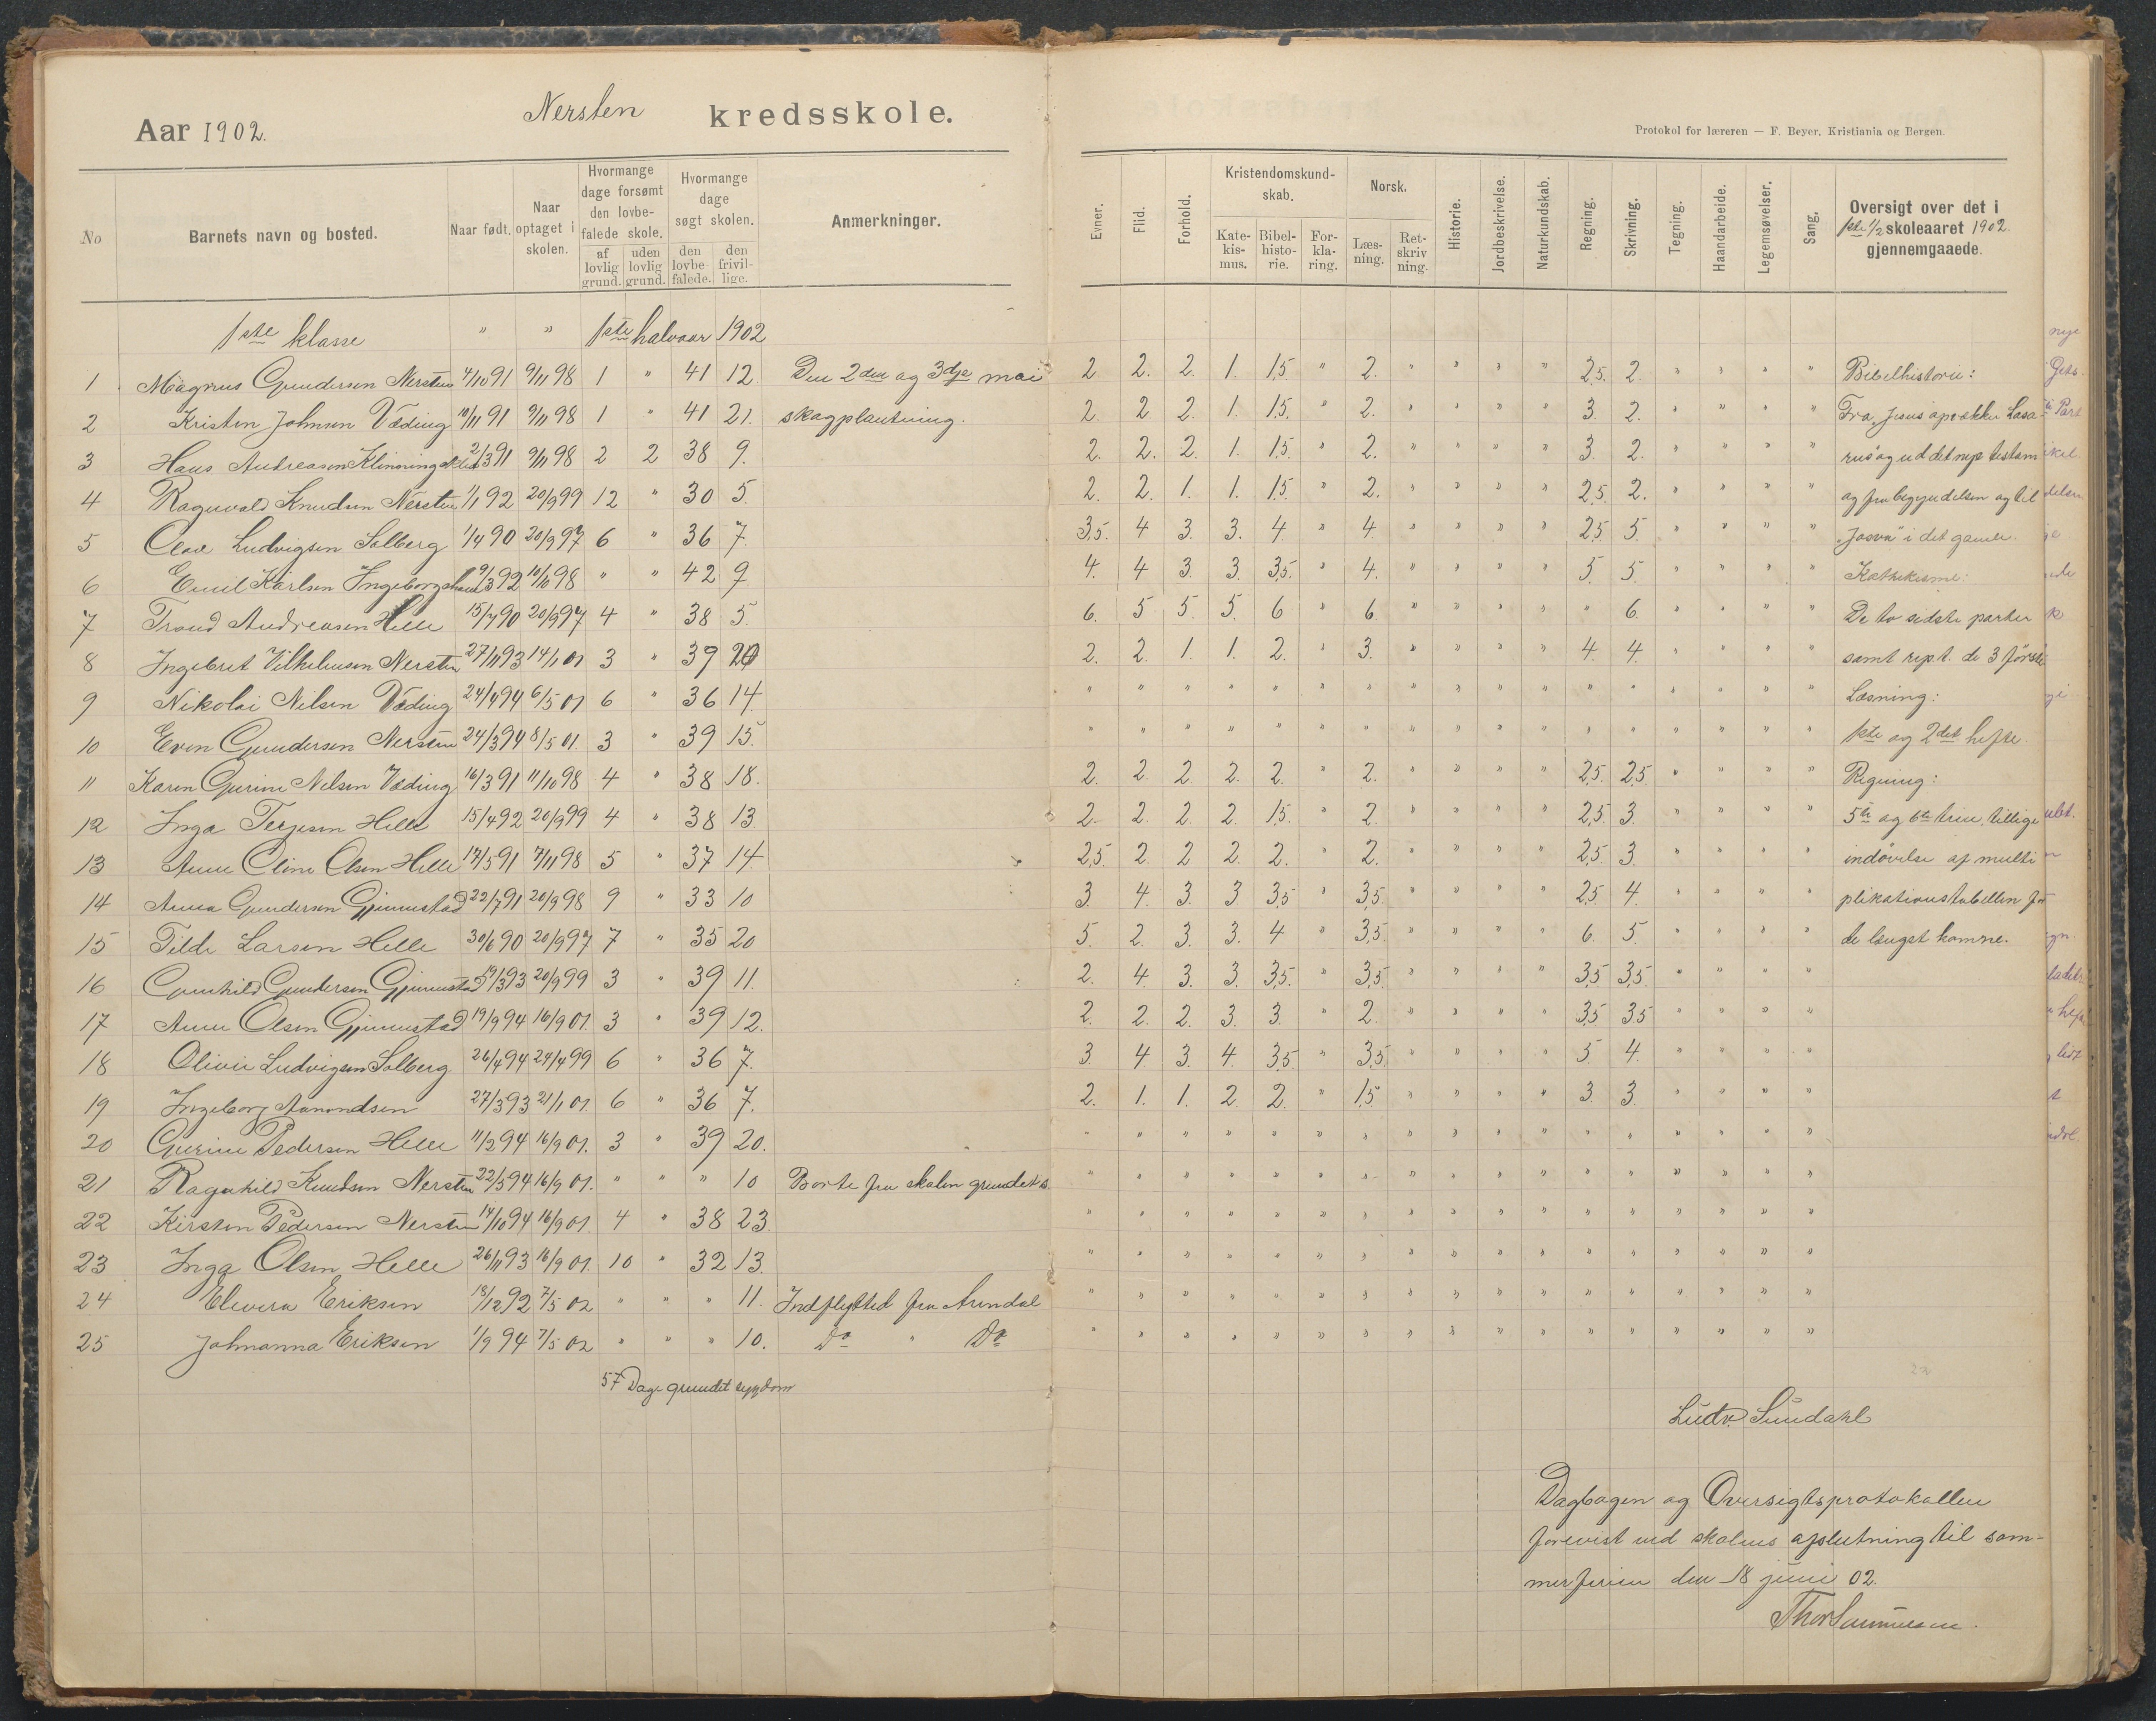 Nersten kredsskole.
Aar 1902.
Protokol for læreren — F. Beyer, Kristiania og Bergen.
No
Barnets navn og bosted.
Naar født.
Naar optaget i skolen.
Hvormange dage forsømt den lovbefalede skole.
af lovlig grund.
uden lovlig grund.
Hvormange dage søgt skolen.
den lovbefalede.
den frivillige.
Anmerkninger.
Evner.
Flid.
Forhold.
Kristendomskundskab.
Katekismus.
Bibelhistorie.
Forklaring.
Norsk.
Læsning.
Retskrivning.
Historie.
Jordbeskrivelse.
Naturkundskab.
Regning.
Skrivning.
Tegning.
Haandarbeide.
Legemsøvelser.
Sang.
Oversigt over det i 1ste 1/2 skoleaaret 1902. gjennemgaaede.
1ste klasse " " 1ste halvaar 1902
1 Magnus Gundersen Nersten 4/10 91 9/11 98 1 " 41 12. Den 2den og 3dje mai 2. 2. 2. 1. 1,5 " 2. " " " " 2,5. 2. " " " " Bibelhistorie:
2 Kristen Johnsen Væding 10/11 91 9/11 98 1 " 41 21. skogplantning. 2. 2. 2. 1. 1,5. " 2. " " " " 3. 2. " " " " Fra „Jesus opvækker Lasa-
3 Hans Andreasen 2/3 91 9/11 98 2 2 38 9. 2. 2. 2. 1. 1,5. " 2. " " " " 3. 2. " " " " rus" og ud det nye testam
4 Ragnvald Knudsen Nersten 1/1 92 20/9 99 12 " 30 5. 2. 2. 1. 1. 1,5. " 2. " " " " 2,5. 2. " " " " og fra begyndelsen og til
5 Olav Ludvigsen Solberg 1/4 90 20/9 97 6 " 36 7. 3,5. 4 3. 3. 4. " 4. " " " " 2,5 5. " " " " „Josva" i det gamle.
6 Emil Karlsen 9/3 92 10/10 98 " " 42 9. 4. 4 3. 3. 3,5. " 4. " " " " 5. 5. " " " " Kathekisme:
7 Trond Andreasen Helle 15/7 90 20/9 97 4 " 38 5. 6. 5 5. 5. 6 " 6. " " " " " 6. " " " " De to sidste parter
8 Ingebret Vilhelmsen Nersten 27/11 93 14/1 01 3 " 39 20 2. 2. 1. 1. 2. " 3. " " " " 4. 4. " " " " samt rept. de 3 første
9 Nikolai Nilsen Væding 24/4 94 6/5 01 6 " 36 14. " " " " " " " " " " " " " " " " " Læsning:
10 Even Gundersen Nersten 24/3 94 8/5 01. 3 " 39 15. " " " " " " " " " " " " " " " " " 1ste og 2det hefte.
11 Karen Gurine Nilsen Væding 16/3 91 11/10 98 4 " 38 18. 2. 2. 2. 2. 2. " 2. " " " " 2,5. 2,5 " " " " Regning:
12 Inga Terjesen Helle 15/4 92 20/9 99 4 " 38 13. 2. 2. 2. 2. 1,5. " 2. " " " " 2,5. 3. " " " " 5te og 6te trin, tillige
13 Anne Oline Olsen Helle 17/5 91 7/11 98 5 " 37 14. 2,5. 2. 2. 2. 2. " 2. " " " " 2,5 3. " " " " indøvelse af multi
14 Anna Gundersen Gjennestad 22/7 91 20/9 98 9 " 33 10 3. 4. 3. 3 3,5 " 3,5. " " " " 2,5 4. " " " " plikationstabellen for
15 Tilde Larsen Helle 30/6 90 20/9 97 7 " 35 20 5. 2. 3. 3. 4 " 3,5. " " " " 6. 5. " " " " de længst komne.
16 Gunhild Gundersen Gjennestad 93 20/9 99 3 " 39 11. 2. 4. 3. 3. 3,5. " 3,5. " " " " 3,5 3,5 " " " "
17 Anne Olsen Gjennestad 19/9 94 16/9 01. 3 " 39 12. 2. 2. 2. 3. 3. " 2. " " " " 3,5 3,5 " " " "
18 Olivie Ludvigsen Solberg 26/4 94 24/4 99 6 " 36 7. 3. 4. 3. 4. 3,5 " 3,5. " " " " 5. 4. " " " "
19 Ingeborg Aanondsen 27/3 93 21/1 01. 6 " 36 7. 2. 1. 1. 2. 2. " 1,5 " " " " 3. 3. " " " "
20 Gurine Pedersen Helle 11/2 94 16/9 01. 3 " 39 20. " " " " " " " " " " " " " " " " "
21 Ragnhild Knudsen Nersten 22/5 94 16/9 01. " " " 10 Borte fra skolen grundet s. " " " " " " " " " " " " " " " " "
22 Kirsten Pedersen Nersten 14/10 94 16/9 01. 4 " 38 23. " " " " " " " " " " " " " " " " "
23 Inga Olsen Helle 26/11 93 16/9 01. 10 " 32 13. " " " " " " " " " " " " " " " " "
24 Elevera Eriksen 18/12 92 7/5 02 " " " 11. Indflyttet fra Arendal " " " " " " " " " " " " " " " " "
25 Johnanna Eriksen 1/9 94 7/5 02 " " " 10. Do " Do " " " " " " " " " " " " " " " " "
57 Dage grundet sygdom
Ludv. Sundahl
Dagbogen og Oversigtsprotokollen
forevist ved skolens afslutning til som-
merferien den 18 juni 02.